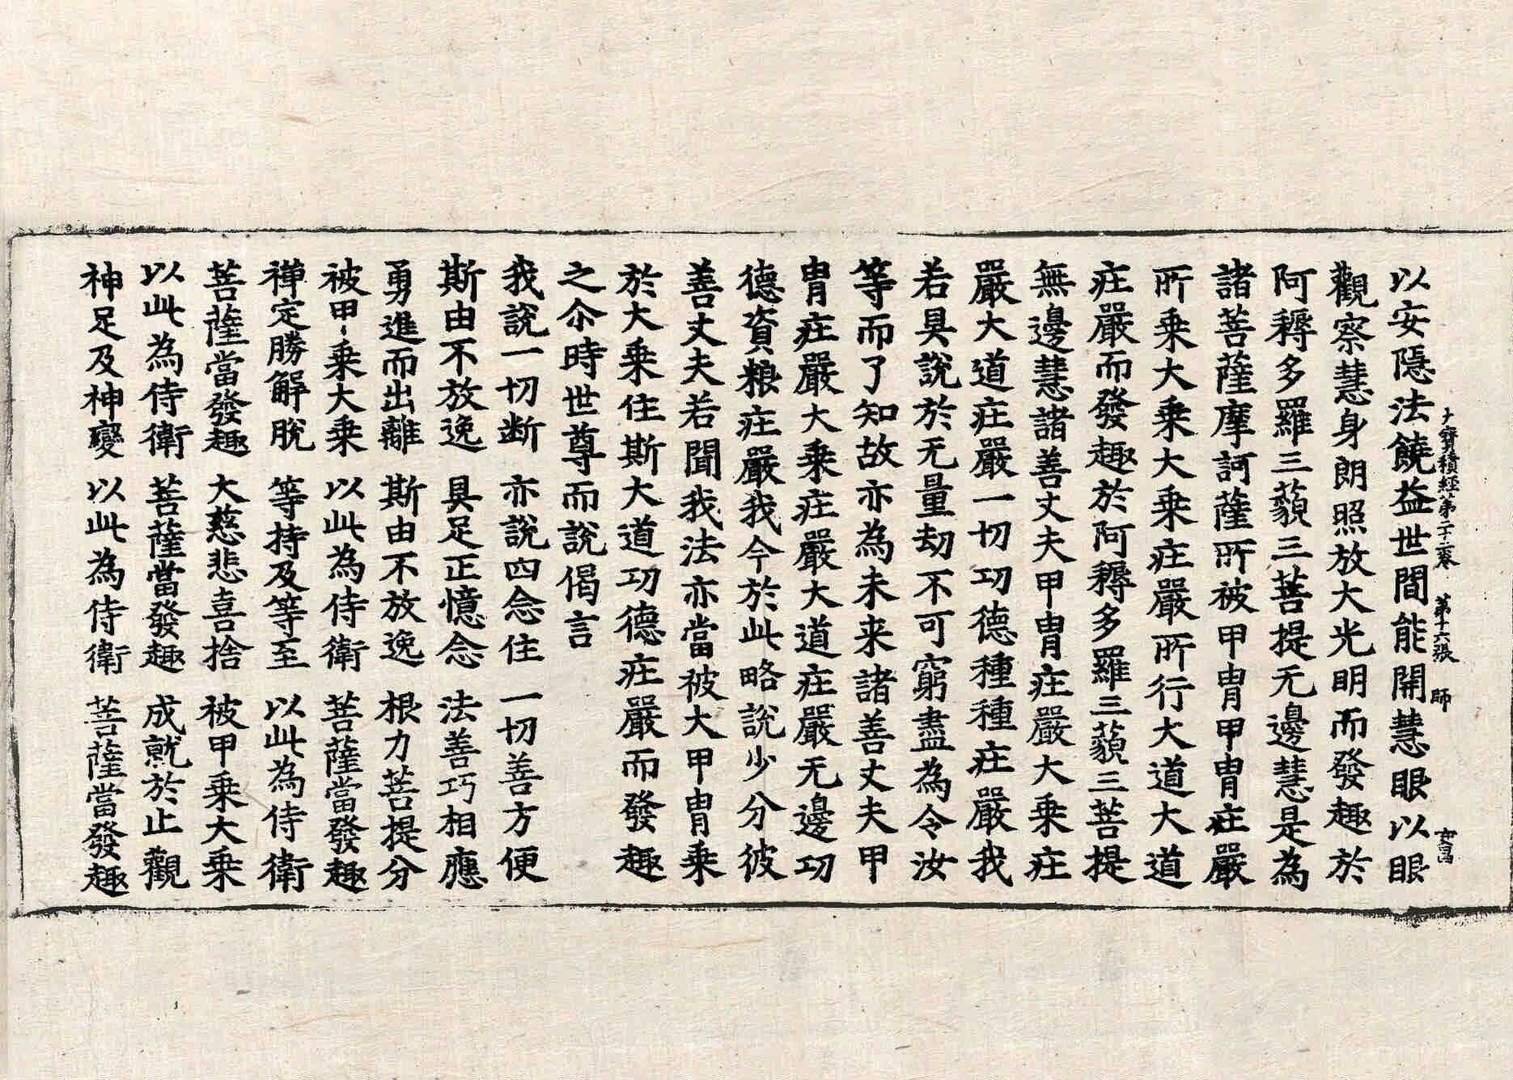 以安隱法饒益世間能開慧眼以眼
大寶積經第二十二卷 第十六張 師
觀察慧身朗照放大光明而發趣於
阿耨多羅三藐三菩提无邊慧是為
諸菩薩摩訶薩所被甲胄甲胄庄嚴
所乘大乘大乘庄嚴所行大道大道
庄嚴而發趣於阿耨多羅三藐三菩提
無邊慧諸善丈夫甲胄庄嚴大乘庄
嚴大道庄嚴一切功德種種庄嚴我
若具說於无量劫不可窮盡為令汝
等而了知故亦為未来諸善丈夫甲
胄庄嚴大乘庄嚴大道庄嚴无邊功
德資粮庄嚴我今於此略說少分彼
善丈夫若聞我法亦當被大甲胄乘
於大乘住斯大道功德庄嚴而發趣
之尒時世尊而說偈言
我說一切断 亦說四念住 一切善方便
斯由不放逸 具足正憶念 法善巧相應
勇進而出離 斯由不放逸 根力菩提分
被甲乘大乘 以此為侍衛 菩薩當發趣
禅定勝解脫 等持及等至 以此為侍衛
菩薩當發趣 大慈悲喜捨 被甲乘大乘
以此為侍衛 菩薩當發趣 成就於止觀
神足及神變 以此為侍衛 菩薩當發趣